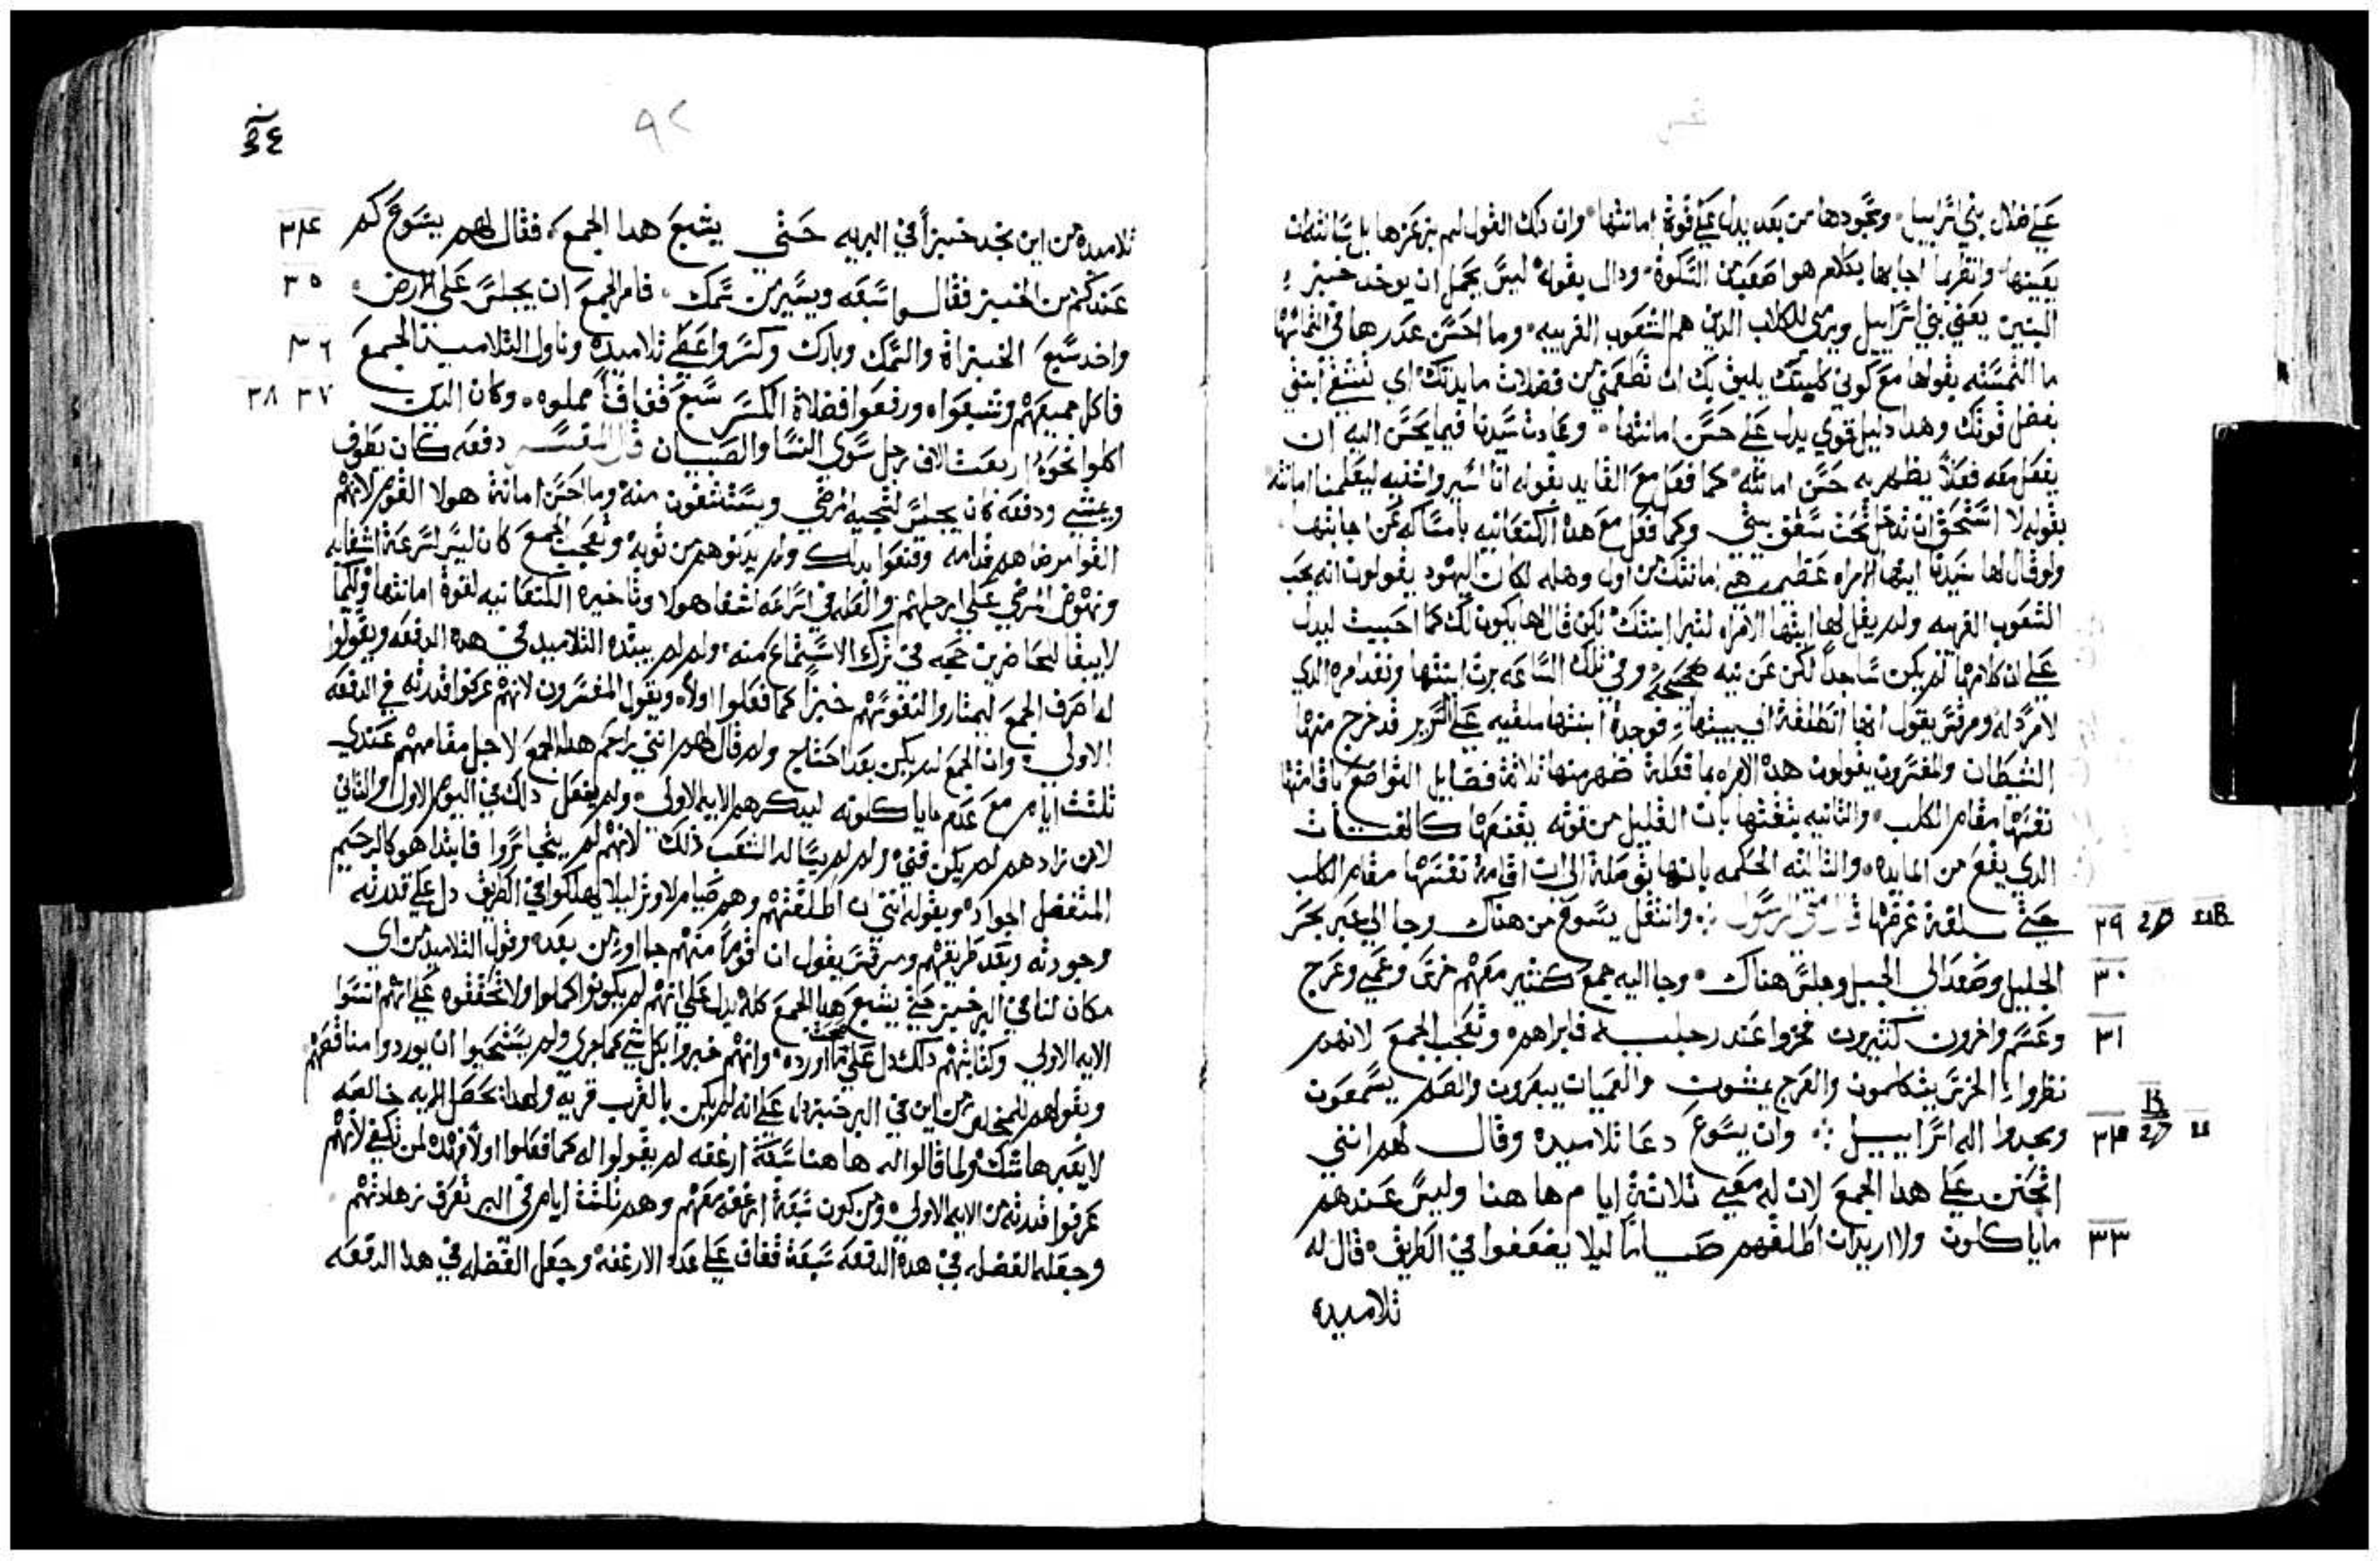 علي ضلال بني اسراييل وسجودها من بعد يدل علي قوة امانتها وان دلك القول لم يزعزها بل
يقينها وانظر ما اجابها بكلام هو اصعب من السكوة ودال بقوله ليس يجمل ان يوخد خبز
البنين يعني بني اسراييل ويرمى للكلاب الدين هم الشعوب الغريبه وما احسن عدرها في
ما التمسته بقولها مع كوني كليبتك يليق بك ان تطعمني من فضلات مايدتك اي تشفي ابنتي
بفضل قوتك وهدا دليل قوي يدل علي حسن امانتها وعادت سيدنا فيما يحسن اليه ان
يفعل معه فعلاً يظهر به حسن امانته كما فعل مع القايد بقوله انا اسير واشفيه ليعلمنا امانته
بقوله لا استحق ان تدخل تحت سقف بيتي وكما فعل مع هده الكنعانيه بامساكه عن اجابتها
ولو قال لها سيدنا ايتها الامراه عظيمه هي امانتك من اول وهله لكان اليهود يقولون انه يحب
الشعوب الغربيه ولم يقل لها ايتها الامراه لتبرا ابنتك لكن قال لها يكون لك كما احببت ليدل
علي ان كلامها لم يكن ساجداً لكن عن نيه صحيحة وفي تلك الساعه برت ابنتها ونفد امره الدي
لا مرد له ومرقس يقول انها انطلقة الي بيتها فوجدة ابنتها ملقيه علي السرير قد خرج منها
الشيطان والمفسرون يقولون هده الامراه بما فعلة ضهر منها ثلاثة فضايل التواضع باقامتها
نفسها مقام الكلب والثانيه بثقتها بان القليل من قوته يقنعها كالفتات
الدي يقع من المايده والثالثه الحكمه بانها توصلة الى ان اقامة نفسها مقام الكلب
حتي بلغة غرضها قال متى الرسول وانتقل يسوع من هناك وجا الي عبر بحر
٢٩
الجليل وصعد الى الجبل وجلس هناك وجا اليه جمع كثير معهم خرس وعمي وعرج
٣٠
وعسم واخرون كثيرون فخروا عند رجليه فابراهم وتعجب الجمع لانهم
٣١
نظروا الخرس يتكلمون والعرج يمشون والعميان يبصرون والصم يسمعون
ومجدوا اله اسراييل وان يسوع دعا تلاميده وقال لهم انني
٣٢
اتحنن علي هدا الجمع لان له معي تلاتة ايام هاهنا وليس عندهم
ماياكلون ولا اريد ان اطلقهم صياماً ليلا يضعفوا في الطريق قال له
٣٣
تلاميده
٩٢
تلاميده من اين نجد خبزاً في البريه حتي يشبع هدا الجمع فقال لهم يسوع كم
٣٤
عندكم من الخبز فقالوا سبعه ويسير من سمك فامر الجمع ان يجلس على الارض
٣٥
واخد سبع الخبزاة والسمك وبارك وكسر واعطي تلاميده وناول التلاميد الجمع
٣٦
فاكل جميعهم وشبعوا ورفعوا فضلاة الكسر سبع قفاف مملوه وكان الدين
٣٧ ٣٨
اكلوا نحو اربعت الاف رجل سوى النسا والصبيان قال المفسر دفعه كان يطوف
ويمشي ودفعه كان يجلس لتجيه المرضي ويستشفون منه وما احسن امانة هولا القوم لانهم
القوا مرضاهم قدامه وقنعوا بدلك ولم يدنوهم من ثوبه وتعجب الجمع كان ليس لسرعة اشفايه
ونهوض المرضي علي ارجلهم والعله في اسراعه اشفا هولا وتاخيره الكنعانيه لقوة امانتها وكيما
لا يبقا للحاضرين حجه في ترك الاستماع منه ولم لم يبتده التلاميد في هده الدفعه ويقولوا
له اصرف الجمع ليمتاروا لنفوسهم خبزاً كما فعلوا اولاً ويقول المفسرون لانهم عرفوا قدرته في الدفعه
الاولي وان الجمع لم يكن بعد احتاج ولم قال لهم انني براحم هدا الجمع لاجل مقامهم عندي
ثلثت ايام مع عدم ماياكلونه ليدكرهم الايه الاولي ولم يفعل دلك في اليوم الاول والثاني
لان زادهم لم يكن فني ولم لم يساله الشعب ذلك لانهم لم يتجاسروا فابتدا هو كالرحيم
المتفضل الجواد وبقوله انني ان اطلقتهم وهم صيام لا اوثر ليلا يهلكوا في الطريق دل علي قدرته
وجودته وبعد طريقهم ومرقس يقول ان قوماً منهم جااو من بعد وقول التلاميد من اي
مكان لنا في البر خبز حتي يشبع هدا الجمع كله يدل علي انهم لم يكونوا كملوا ولا تحققوه علي انهم انسوا
الايه الاولي وكتابتهم دلك دل علي صحت ما اورده وانهم خبروا بكل شي كما جري ولم يستحيوا ان يوردوا مناقصهم
وبقولهم للمخلص من اين في البر خبز دل علي انه لم يكن بالقرب قريه ولهدا تحصل الايه خالصه
لا يعبرها شك ولما قالوا له هاهنا سبعة ارغفه لم يقولوا له كما فعلوا اولاً فهده لمن تكفي لانهم
عرفوا قدرته من الايه الاولي ومن كون سبعة ارغفه معهم وهم ثلثت ايام في البر تعرف زهادتهم
وجعله الفضله في هده الدفعه سبعة قفاف علي عدد الارغفة وجعل الفضله في هدا الدفعه